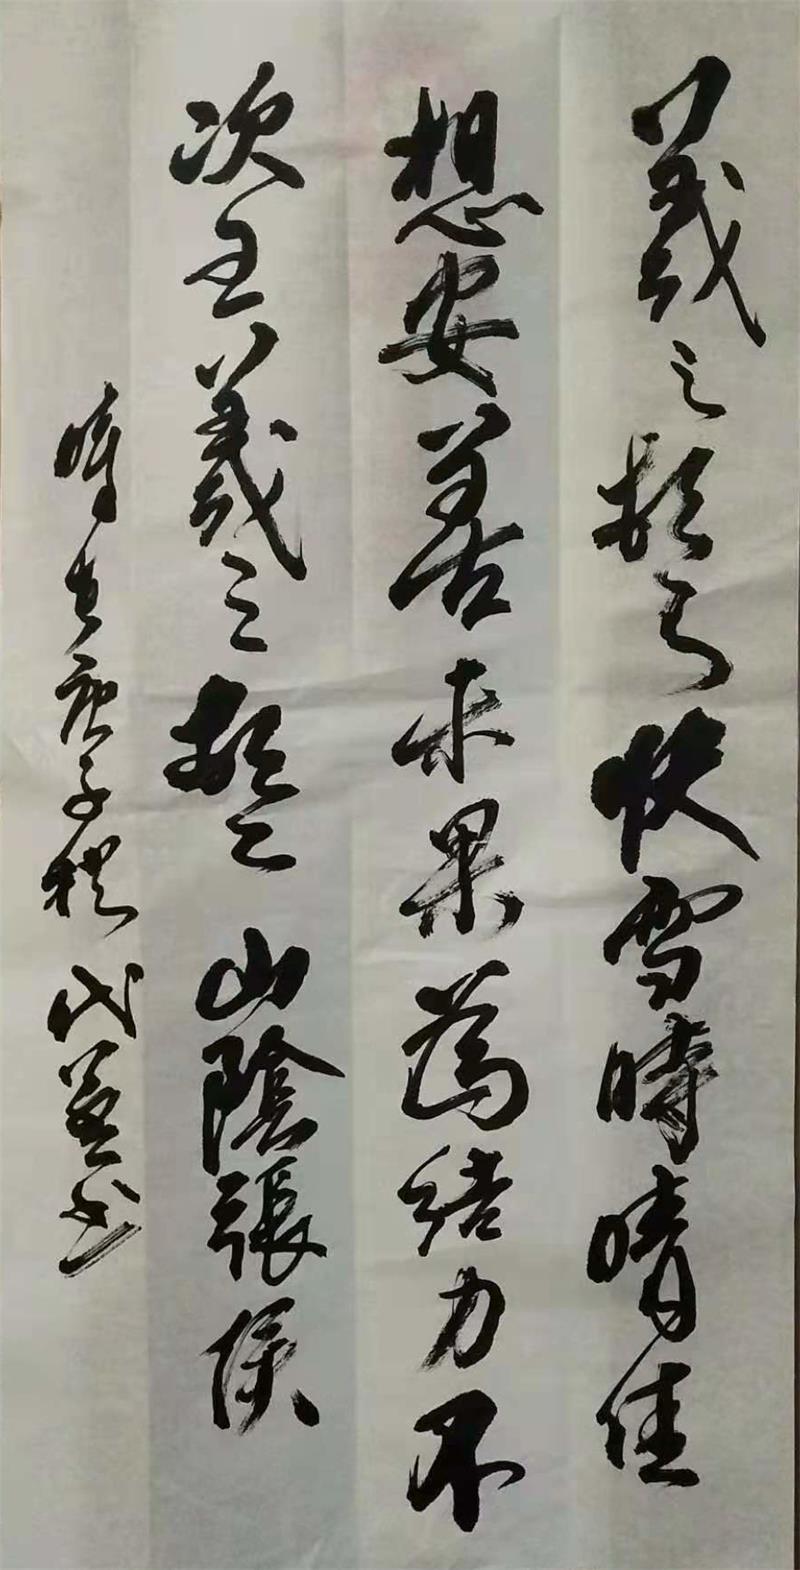 羲之頓首快雪時晴佳
想安善未果為結力不
次王羲之頓首山陰張侯
時在庚子秋代英书